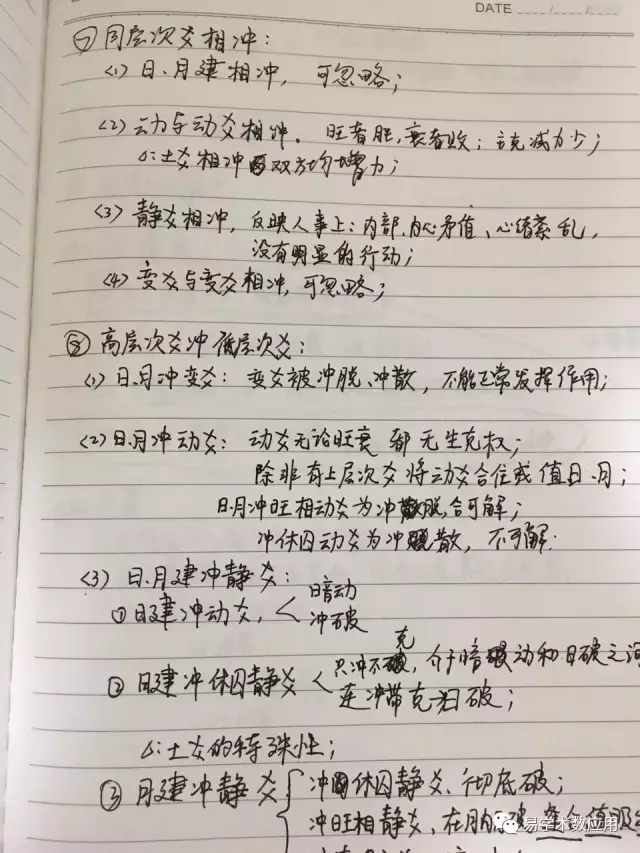 DATE
㊀ 同层次爻相冲：
<1> 日、月建相冲，可忽略；
<2> 动与动爻相冲。旺者胜，衰者败；主克减力少；
△：土爻相冲双方均增力；
<3> 静爻相冲，反映人事上：内部、内心矛值、心绪紊乱，
没有明显的行动；
<4> 变爻与变爻相冲，可忽略；
高层次爻冲低层次爻：
<1> 日、月冲变爻：变爻被冲脱、冲散，不能正常发挥作用；
<2> 日、月冲动爻：动爻无论旺衰都无生克权；
除非有上层次爻将动爻合住或值日、月；
日月冲旺相动爻为冲脱，合可解；
冲休囚动爻为冲散，不可解.
<3> 日、月建冲静爻：
① 日建冲动爻，< 暗动
冲破
② 日建冲休囚静爻 < 只冲不克，介于暗动和日破之间
连冲带克为破；
△：土爻的特殊性；
③ 月建冲静爻 { 冲休囚静爻、彻底破；
冲旺相静爻、在月内破
易学术数应用